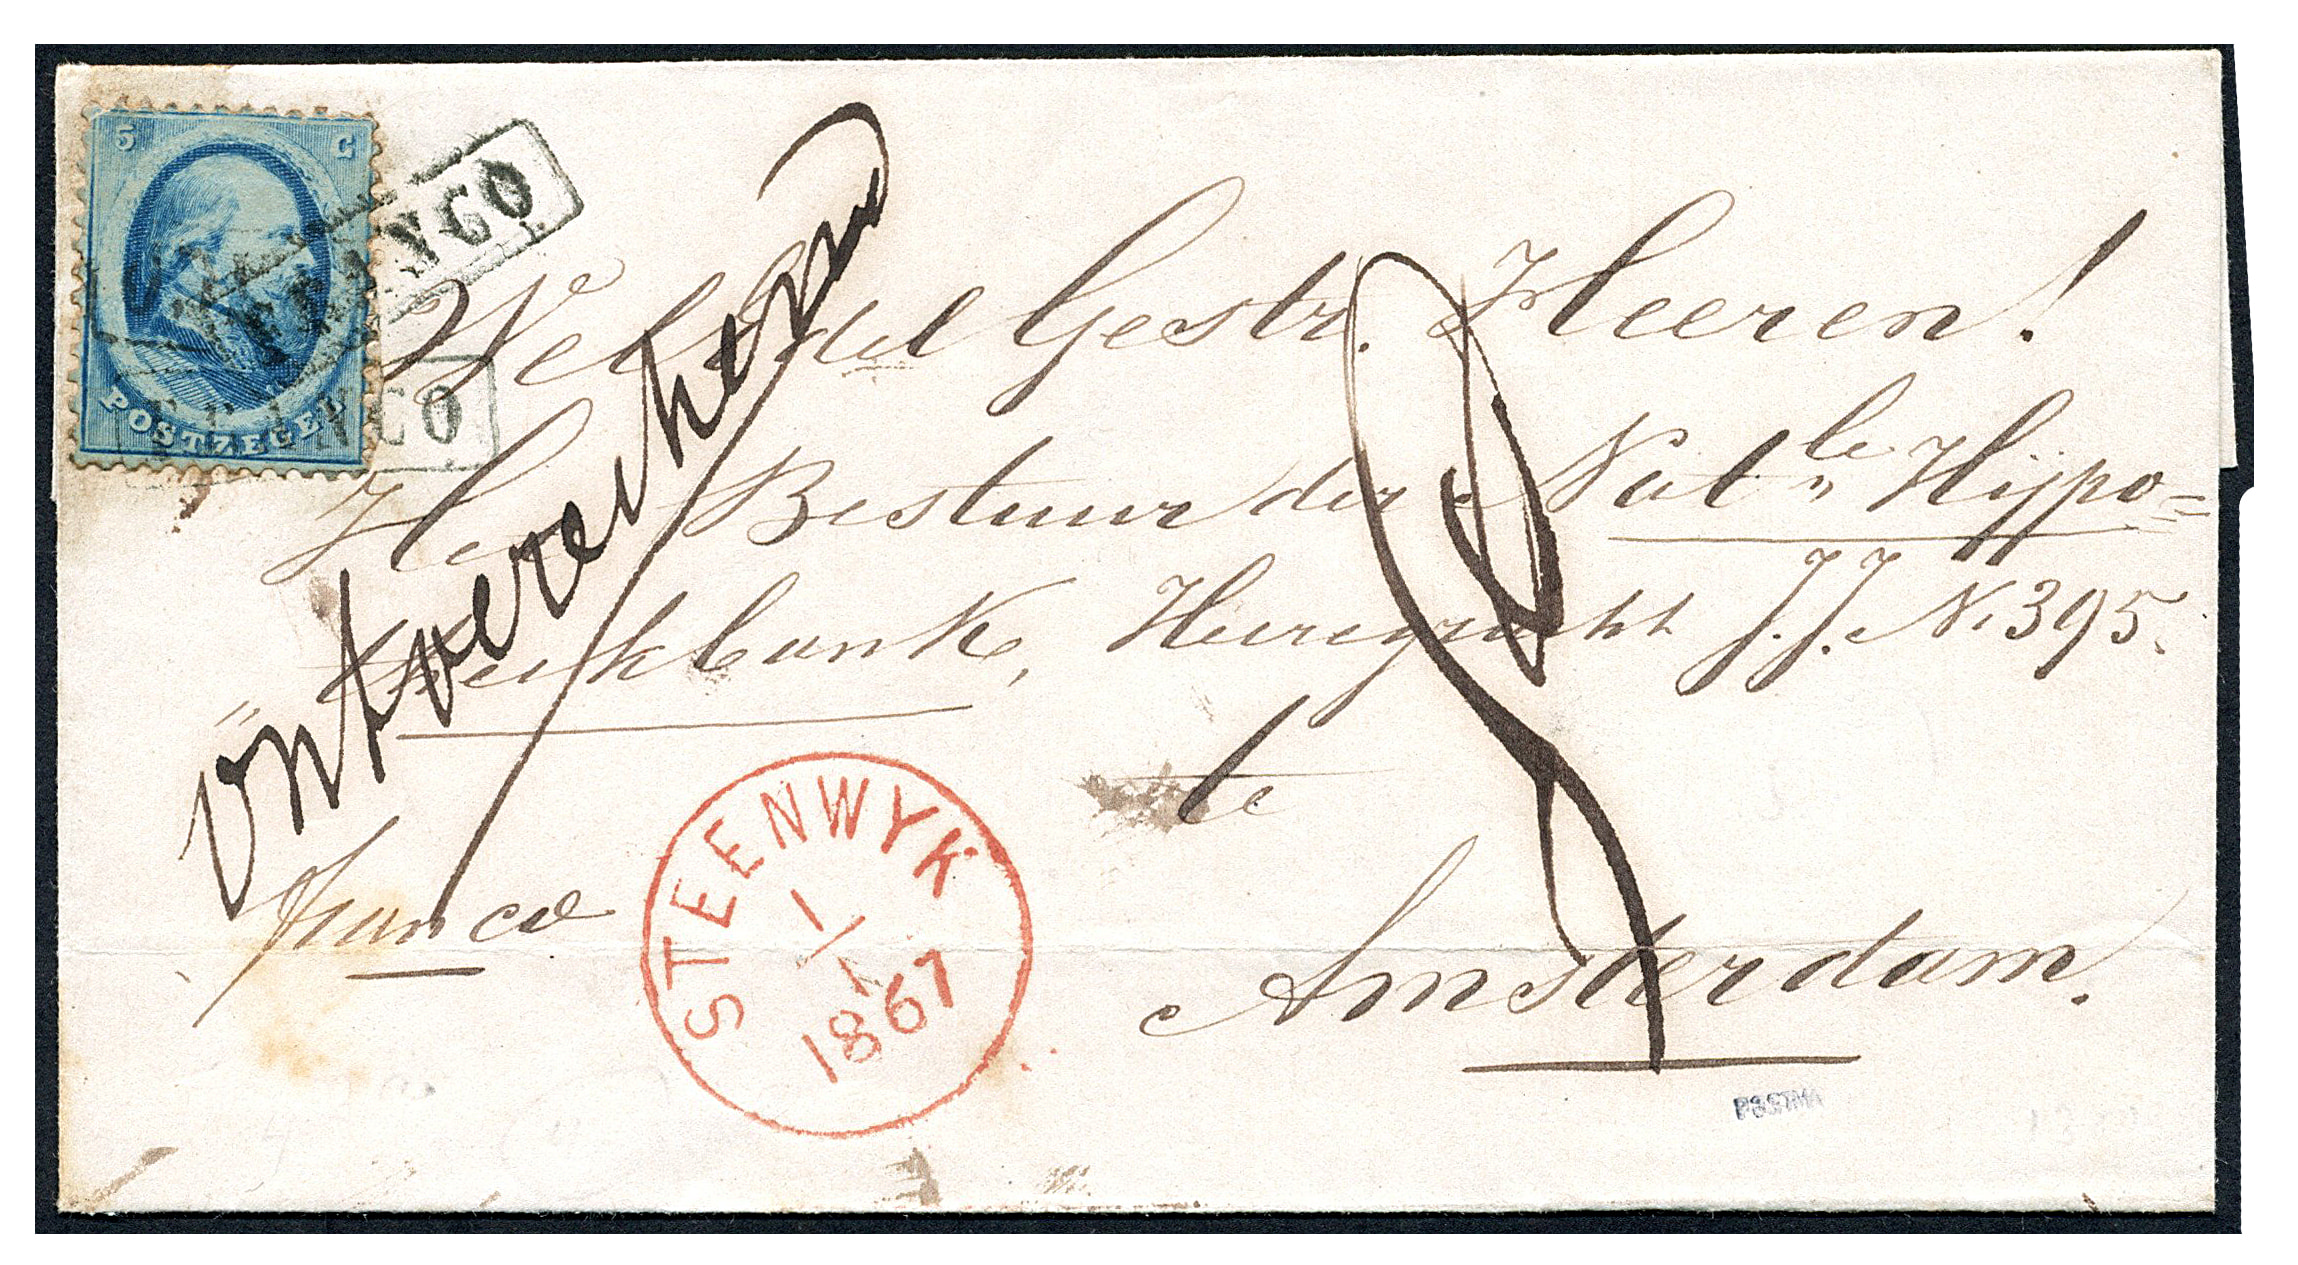 5 C
POSTZEGEL
FRANCO
FRANCO
WelEdel Gestr. Heeren!
Het Bestuur der Natle Hypo=
"theekbank, Heeregracht J.J. N. 395.
te
Amsterdam.
ontoereikend
franco
STEENWYK
1/1
1867
POSTMA